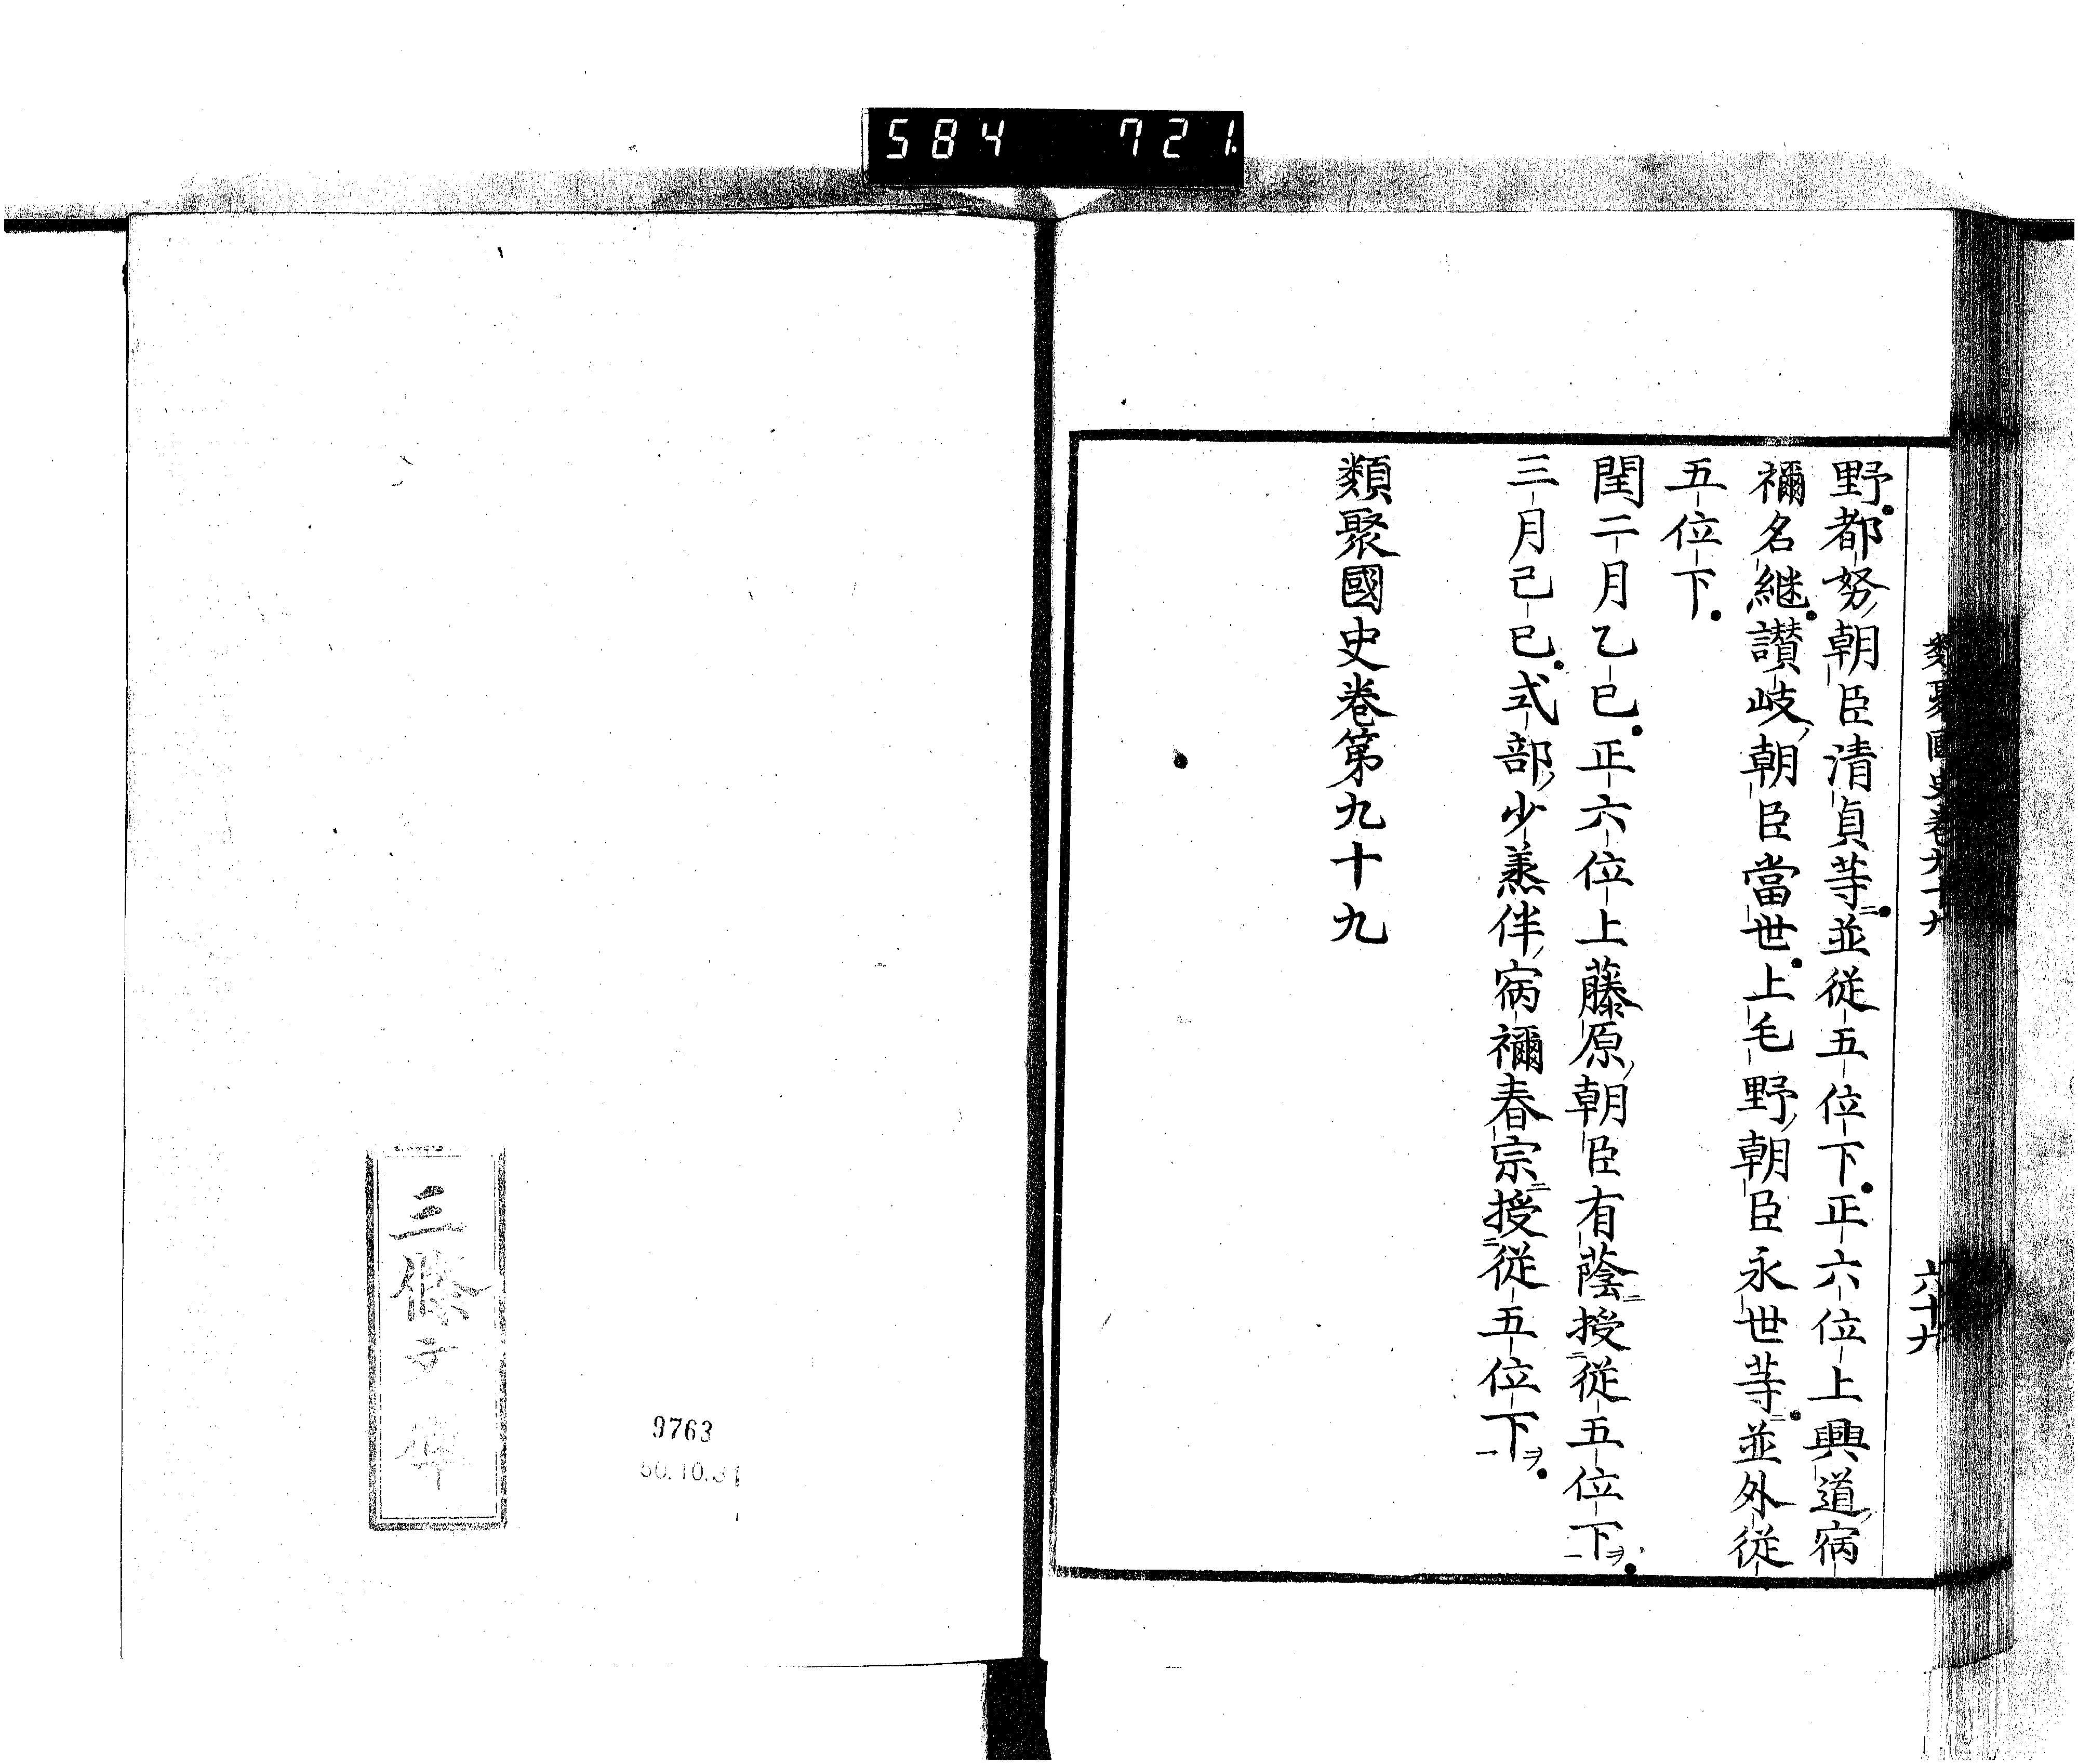 584 721
類聚國史卷九十九
六十九
野都努朝臣清貞等並從五位下正六位上興道宿
禰名継讃岐朝臣當世上毛野朝臣永世等並外從
五位下
閏二月乙巳正六位上藤原朝臣有蔭授從五位下ヲ
三月己巳式部少丞伴宿禰春宗授從五位下ヲ
類聚國史卷第九十九
三條文庫
9763
50.10.31